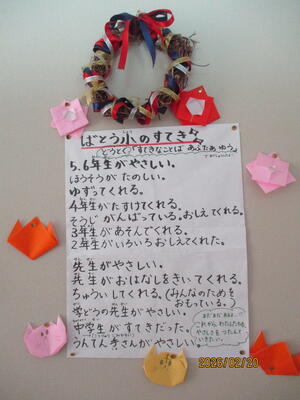 ばとう小のすてき
どうとく「すてきなことば あふたあ ゆう。
5.6年生がやさしい。
ほうそうが たのしい。
ゆずってくれる。
4年生がたすけてくれる。
そうじ がんばっている。おしえてくれる。
3年生があそんでくれる。
2年生がいろいろおしえてくれた。
先生がやさしい。
先生がおはなしをきいてくれる。
ちゅういしてくれる。(みんなのためを
おもっている。)
学どうの先生がやさしい。
中学生がすてきだった。
うんてん手さんがやさしい。
まだまだあるよ。
これから わたしたちも
やさしさを つたえて
いきたい。
2026/02/20